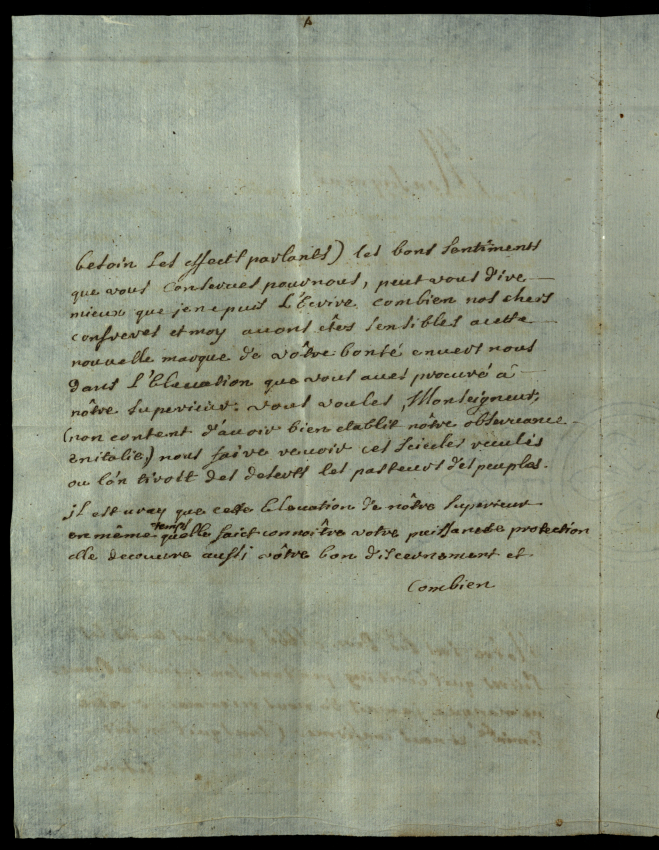 besoin les effects parlants) les bons sentiments
que vous Conserves pour nous, peut vous dire
mieux que je ne puis L'Ecrire combien nos chers
confreres et moy avons etês sensibles a cette
nouvelle marque de vôtre bonté envers nous
dans L'Elevation que vous aves procuré â
nôtre superieur. vous voules, Monseigneur,
(non content d'avoir bien etablit nôtre observance
en italie,) nous faire revoir ces siecles reculés
ou l'on tiroit des deserts les pasteurs des peuples.
jl est vray que cette Elevation de nôtre superieur
en même temps quelle faict connoître votre puissance protection
elle decouvre aussi vôtre bon discernement et
Combien